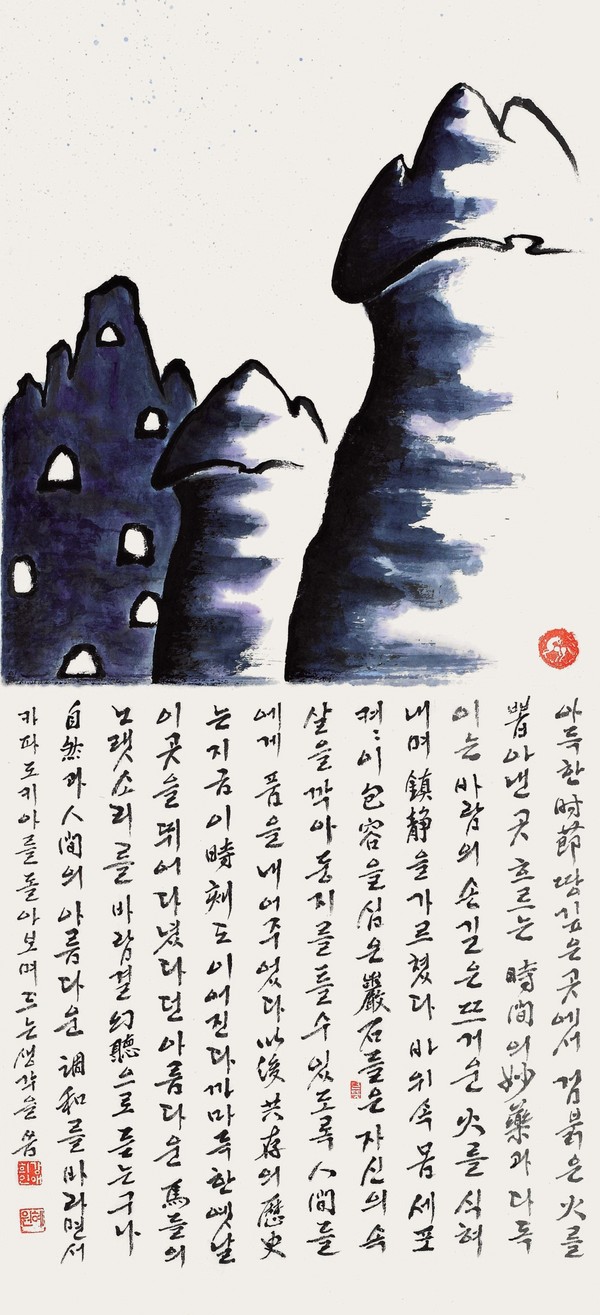 아득한 時節 땅 깊은 곳에서 검붉은 火를
뽑아낸 곳 흐르는 時間의 妙藥과 다독
이는 바람의 손길은 뜨거운 火를 식혀
내며 鎭静을 가르쳤다 바위 속 몸 세포
켜켜이 包容을 심은 巖石들은 자신의 속
살을 깍아 둥지를 틀 수 있도록 人間들
에게 품을 내어주었다 以後 共存의 歷史
는 지금 이 時刻도 이어진다 까마득한 옛날
이곳을 뛰어다녔다던 아름다운 馬들의
노랫소리를 바람결 幻聽으로 듣는구나
自然과 人間의 아름다운 調和를 바라면서
카파도키아를 돌아보며 드는 생각을 씀